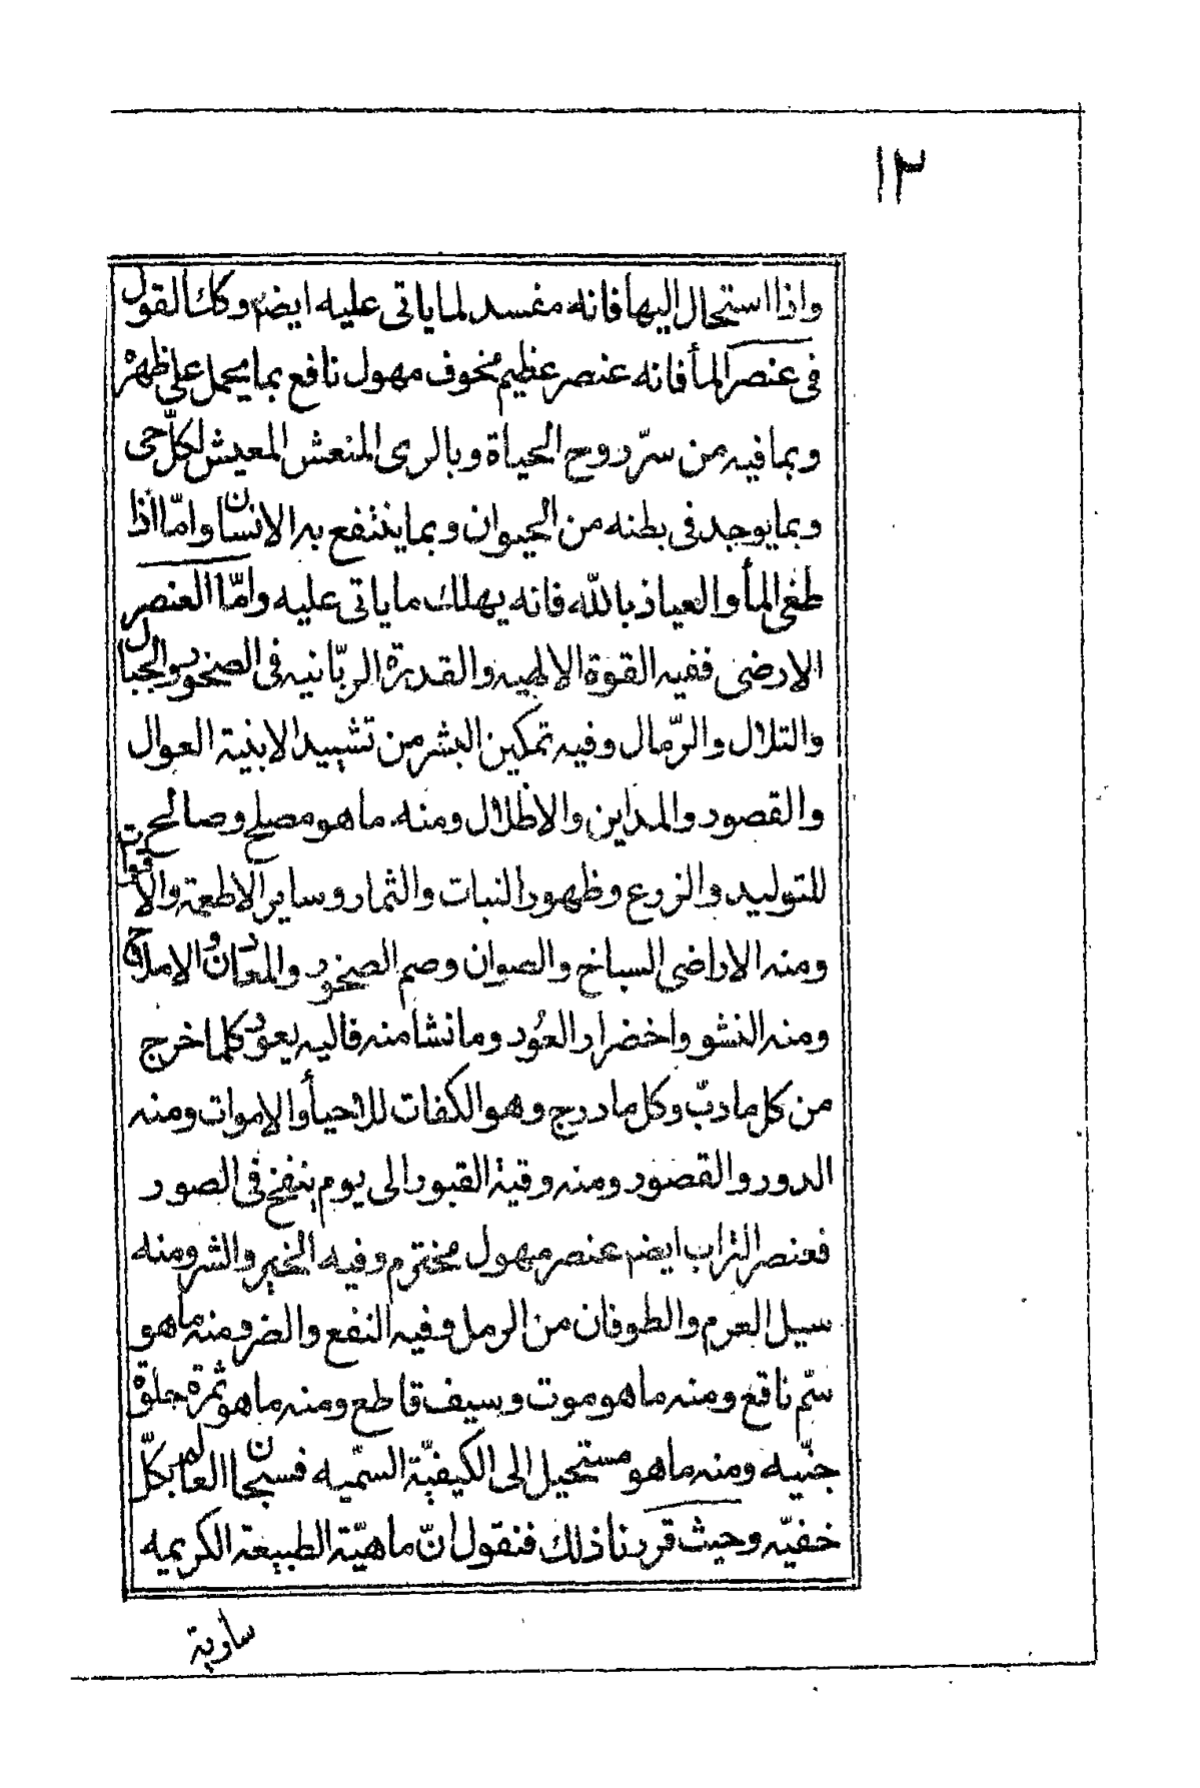 ١٢
واذا استحال اليها فانه مفسد لما ياتى عليه ايضم وكك القول
فى عنصر المأ فانه عنصر عظيم مخوف مهول نافع بما يحمل على ظهره
وبما فيه من سرّ روح الحياة وبالرى المنعش المعيش لكلّ حى
وبما يوجد فى بطنه من الحيوان وبما ينتفع به الانسان وامّا اذا
طغى المأ والعياذ بالله فانه يهلك ما ياتى عليه وامّا العنصر
الارضى ففيه القوة الالهيه والقدرة الربّانيه فى الصخور والجبال
والتلال والرّمال وفيه تمكين البشر من تشييد الابنية العوال
والقصور والمداين والاظلال ومنه ما هو مصلح وصالح
للتوليد والزرع وظهور النبات والثمار وساير الاطعمة والاقوات
ومنه الاراضى السباخ والصوان وصم الصخور والمعادن والاملاح
ومنه النشو واخضرار العُود وما نشا منه فاليه يعود كلما خرج
من كل ما دبّ وكل ما درج وهو الكفات للاحيأ والاموات ومنه
الدور والقصور ومنه وقية القبور الى يوم ينفخ فى الصور
فعنصر التراب ايضم عنصر مهول محترم وفيه الخير والشر ومنه
سيل العرم والطوفان من الرمل وفيه النفع والضر ومنه ما هو
سّم ناقع ومنه ما هو موت وسيف قاطع ومنه ما هو ثمرة حلوة
جنّيه ومنه ما هو مستحيل الى الكيفيّة السمّيه فسبحان العالم بكلّ
خفيّه وحيث قررنا ذلك فنقول انّ ماهيّة الطبيعة الكريميه
ساوية